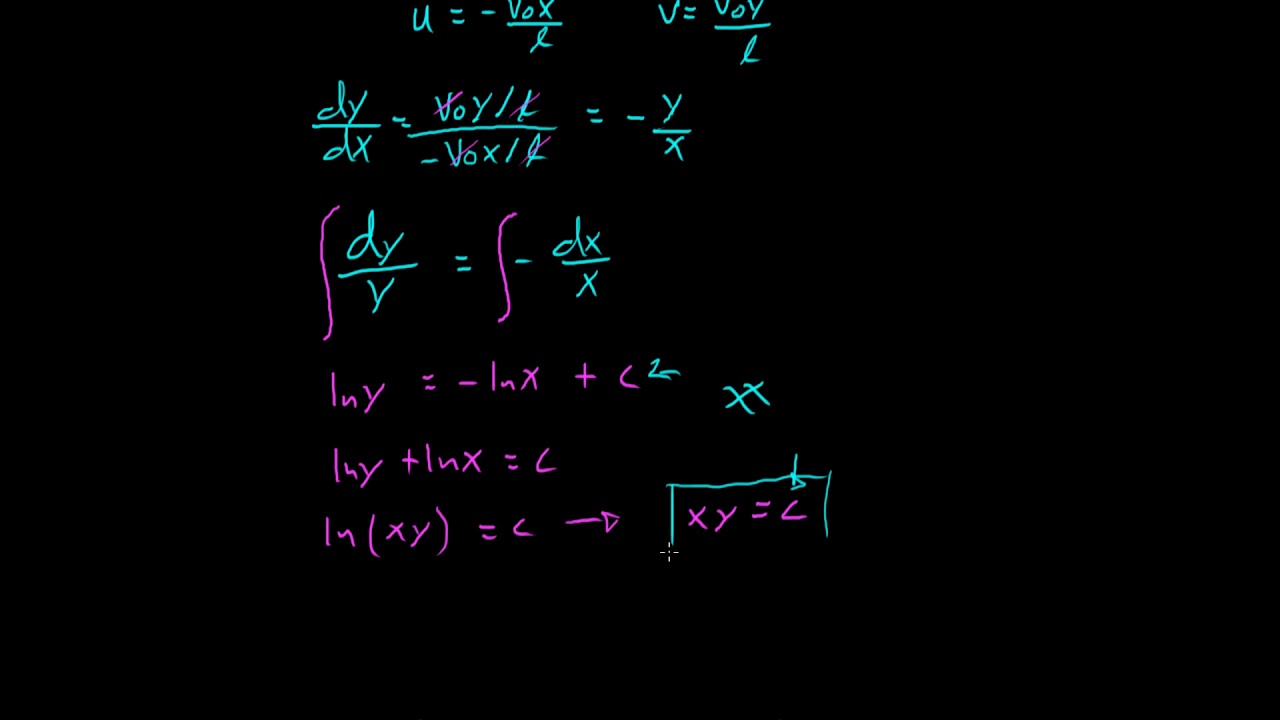 u = - V₀x/l   v = V₀y/l
dy/dx = V₀y/l / -V₀x/l = - y/x
∫ dy/y = ∫ - dx/x
lny = -lnx + c
lny + lnx = c
ln(xy) = c → xy = c